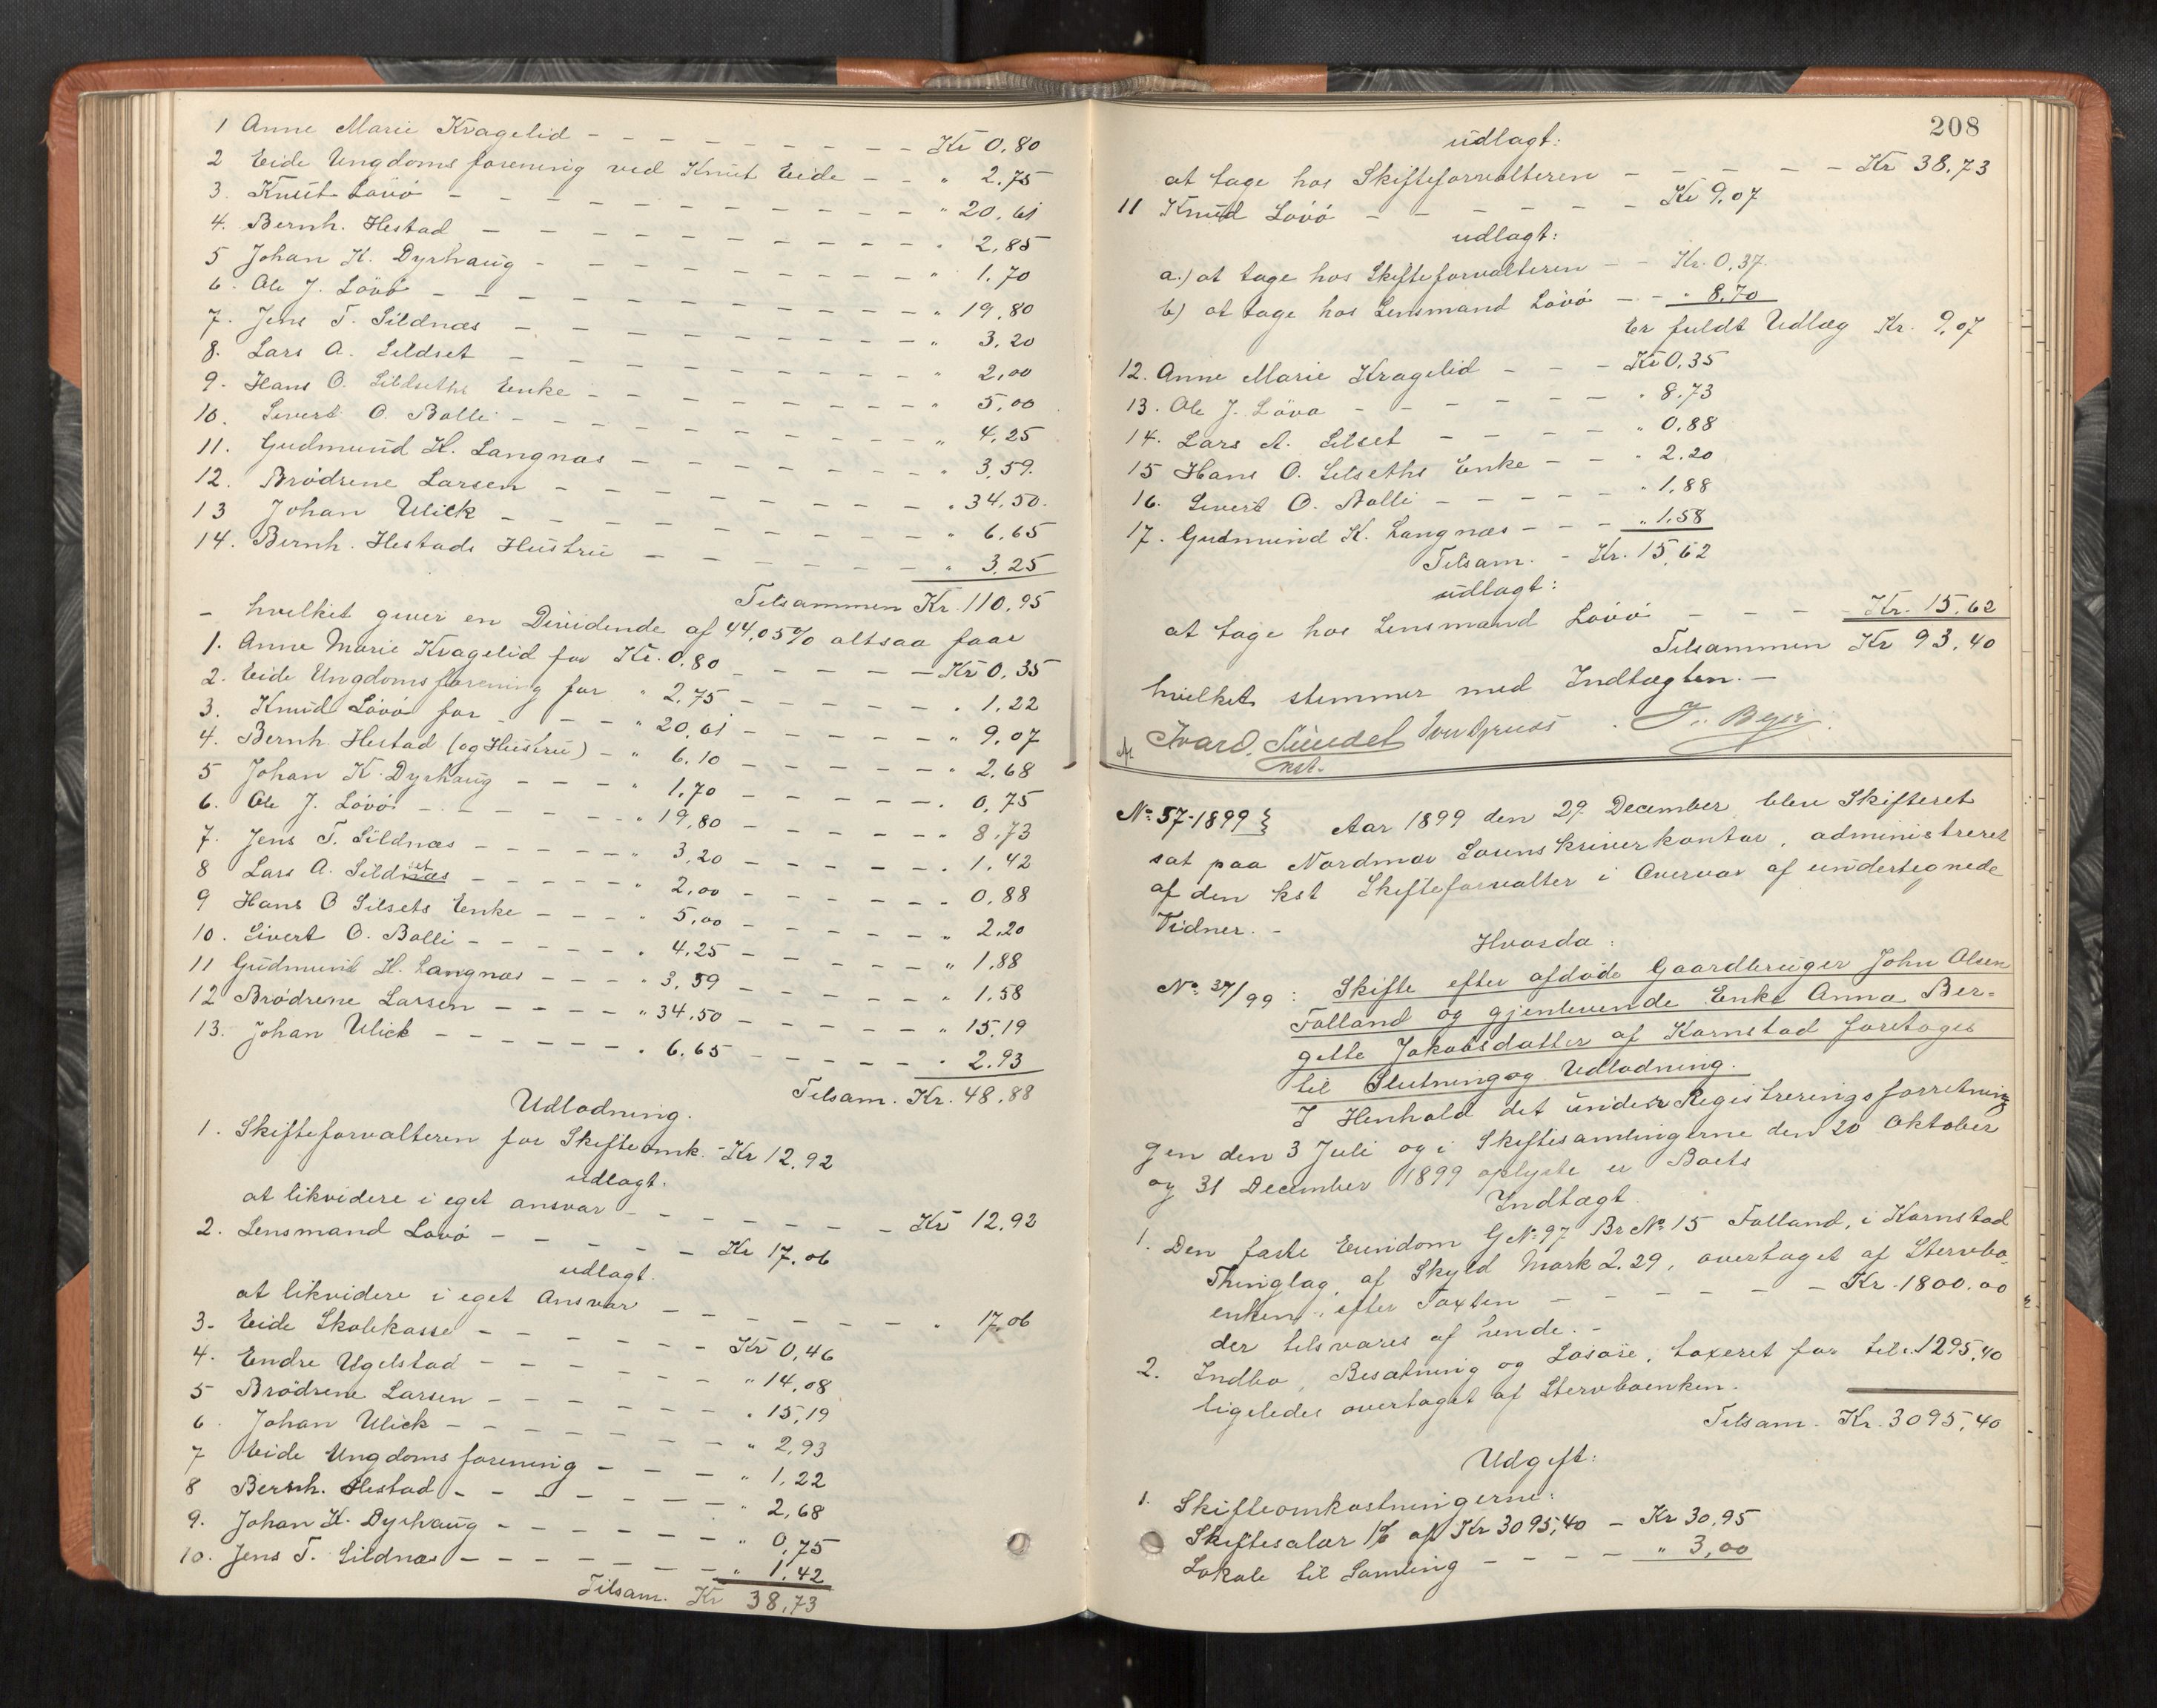 1 Anne Marie Kvagelid - - - - - - - - - Kr 0.80
2 Eide Ungdoms forening ved Knut Eide - - " 2.75
3. Knut Lövö - - - - - - - - - - - " 20.61
4. Bernh. Hestad - - - - - - - - - - " 2.85
5 Johan K. Dyrhaug - - - - - - - - - " 1.70
6. Ole J. Lövö - - - - - - - - - - " 19.80
7. Jens T. Sildnæs - - - - - - - - - " 3.20
8. Lars A. Sildset - - - - - - - - - " 2,00
9. Hans O. Sildseths Enke - - - - - - - - " 5,00
10. Sivert O. Bolli - - - - - - - - - " 4,25
11. Gudmund H. Langnæs - - - - - - - - " 3,59.
12. Brødrene Larsen - - - - - - - - - " 34,50.
13 Johan Ulick - - - - - - - - - - " 6.65
14. Bernh. Hestads Hustru - - - - - - - " 3.25
Tilsammen Kr. 110.95
- hvilket giver en Dividende af 44,05% altsaa faar
1. Anne Marie Kvagelid for Kr. 0.80 - - - - - Kr 0.35
2. Eide Ungdoms forening for " 2,75 - - - - - " 1,22
3. Knud Lövö for - - - " 20,61 - - - - - " 9,07
4. Bernh. Hestad (og Hustru) - " 6.10 - - - - - " 2.68
5 Johan K. Dyrhaug - - - " 1.70 - - - - - . 0,75
6. Ole J. Lövö - - - - - " 19,80 - - - - - " 8,73
7. Jens T. Sildnæs - - - - - " 3,20 - - - - - . 1,42
8 Lars A. Sildnæs set - - - - " 2,00 - - - - - " 0,88
9 Hans O Silsets Enke - - - " 5,00 - - - - - " 2,20
10. Sivert O. Bolli - - - - - . 4,25 - - - - - " 1,88
11 Gudmund H. Langnæs - - - " 3,59 - - - - - " 1.58
12 Brödrene Larsen - - - - " 34,50 - - - - - " 15,19
13. Johan Ulick - - - - - - . 6.65 - - - - - . 2.93
Tilsam. Kr. 48,88
Udlodning.
1. Skifteforvalteren for Skifteomk. - Kr 12,92
udlagt.
at likvidere i eget ansvar - - - - - - - - Kr 12.92
2. Lensmand Lövö - - - - - Kr 17.06
udlagt.
at likvidere i eget Ansvar - - - - - - - - . 17,06
3. Eide Skolekasse - - - - - - - Kr 0,46
4. Endre Ugelstad - - - - - - - " 14,08
5 Brödrene Larsen - - - - - - - . 15,19
6. Johan Ulick - - - - - - - - " 2,93
7 Eide Ungdoms forening - - - - " 1,22
8 Bernh. Hestad - - - - - - - . 2,68
9. Johan K. Dyrhaug - - - - - - " 0,75
10. Jens T. Sildnæs - - - - - - " 1,42
Tilsam. Kr 38,73
208
udlagt:
at tage hos Skifteforvalteren - - - - - - Kr 38.73
11 Knud Lövö - - - - - - Kr 9,07
udlagt:
a.) at tage hos Skifteforvalteren - - Kr. 0,37.
b) at tage hos Lensmand Lövö - - . 8,70
Er fuldt Udlæg Kr. 9,07
12. Anne Marie Kvagelid - - - Kr 0,35
13. Ole J. Löva - - - - - - . 8.73
14. Lars A. Silset - - - - - " 0,88
15 Hans O. Silseths Enke - - - . 2.20
16. Sivert O. Bolli - - - - - " 1,88
17. Gudmund K. Langnæs - - - " 1,58
Tilsam. - Kr. 15,62
udlagt:
at tage hos Lensmand Lövö - - - - Kr. 15,62
Tilsammen Kr 93,40
hvilket stemmer med Indtægten. -
Ivar O. Sundet
kst.
No 57-1899 Aar 1899 den 29 December blev Skifteret
sat paa Nordmør Sorenskriverkontor, administreret
af den kst Skifteforvalter i Overvær af undertegnede
Vidner. -
Hvorda:
No. 37/99: Skifte efter afdøde Gaardbruger John Olsen
Folland og gjenlevende Enke Anna Ber-
gitte Jakobsdatter af Kornstad foretoges
til Slutning og Udlodning.
I Henhold det under Registreringsforretnin
gen den 3 Juli og i Skiftesamlingerne den 20 Oktober
og 31 December 1899 oplyste er Boets
Indtægt.
1. Den faste Eiendom GNo 97 BrNo 15 Folland, i Kornstad
Thinglag, af Skyld Mark 2.29, overtaget af Stervbo-
enken, efter Taxten - - - - - - - Kr. 1800.00
der tilsvares af hende. -
2. Indbo, Besætning og Løsøre, taxeret for til: 1295,40
ligeledes overtaget af Stervboenken.
Tilsam. Kr. 3095,40
Udgift:
1. Skifteomkostningerne:
Skiftesalær 1% af Kr 3095,40 - Kr 30,95
Lokale til Samling - - - - " 3,00